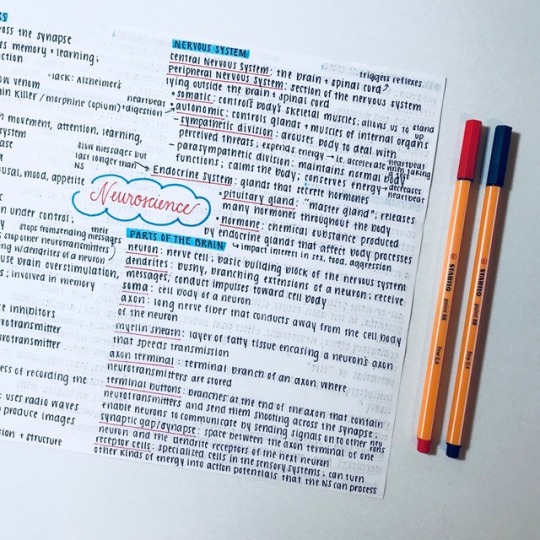 oss the synapse
es memory + learning;
ction
on venom
• lack: Alzheimer's
in killer / morphine (opium)
heartbeat
+digestion
h movement, attention, learning,
system
ase
slow messages but
last longer than
NS
usal, mood, appetite
n under control;
their
stops from sending messages
stop other neurotransmitters
w/dendrites of a neuron
use brain overstimulation,
s; involved in memory
e inhibitors
urotransmitter
urotransmitter
ess of recording the
: uses radio waves
o produce images
sion + structure
Neuroscience
NERVOUS SYSTEM
central nervous system: the brain + spinal cord
triggers reflexes
peripheral nervous system: section of the nervous system
lying outside the brain + spinal cord
• somatic: controls body's skeletal muscles; allows us to stand up
• autonomic: controls glands + muscles of internal organs
- sympathetic division: arouses body to deal with
perceived threats; expends energy → i.e. accelerate heartbeat when taking
- parasympathetic division: maintains normal body
functions; calms the body; conserves energy → decreases heartbeat
Endocrine system: glands that secrete hormones
• pituitary gland: "master gland"; releases
many hormones throughout the body
• hormone: chemical substance produced
by endocrine glands that affect body processes
↳ impact interest in sex, food, aggression
PARTS OF THE BRAIN
neuron: nerve cell; basic building block of the nervous system
dendrites: bushy, branching extensions of a neuron; receive
messages, conduct impulses toward cell body
soma: cell body of a neuron
axon: long nerve fiber that conducts away from the cell body
of the neuron
myelin sheath: layer of fatty tissue encasing a neuron's axon
that speeds transmission
axon terminal: terminal branch of an axon where
neurotransmitters are stored
terminal buttons: branches at the end of the axon that contain
neurotransmitters and send them shooting across the synapse;
enable neurons to communicate by sending signals on to other neurons
synaptic gap/synapse: space between the axon terminal of one
neuron and the dendrite receptors of the next neuron
receptor cells: specialized cells in the sensory systems; can turn
other kinds of energy into action potentials that the NS can process
STABILO
STABILO